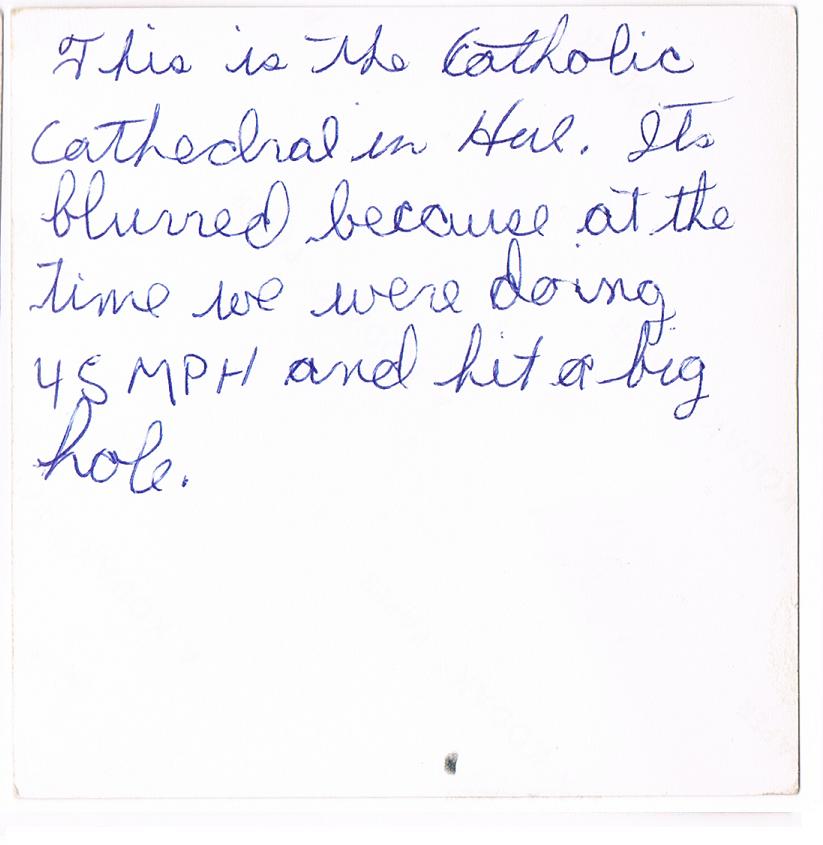 This is the Catholic
Cathedral in Hue. Its
blurred because at the
time we were doing
45 MPH and hit a big
hole.